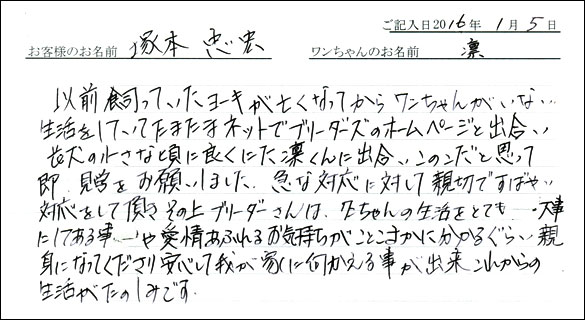 ご記入日2016年 1月 5日
お客様のお名前 塚本 忠宏 ワンちゃんのお名前 凛
以前飼っていたヨーキーが亡くなってからワンちゃんがいない
生活をしていてたまたまネットでブリーダーズのホームページと出会い
犬の小さな頃に良くにた凛くんに出会い、このこだと思って
即、見学をお願いしました。急な対応に対して親切ですばやい
対応をして頂きその上ブリーダーさんは、ワンちゃんの生活をとても大事
にしてある事や愛情あふれるお気持ちがことこまかに分かるぐらい親
身になってくださり安心して我が家に向かえる事が出来これからの
生活がたのしみです。